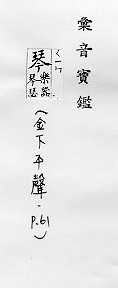 彙音寶鑑
ㄑㄧㄣˊ
琴
樂器
琴瑟
(金下平聲·P.61)